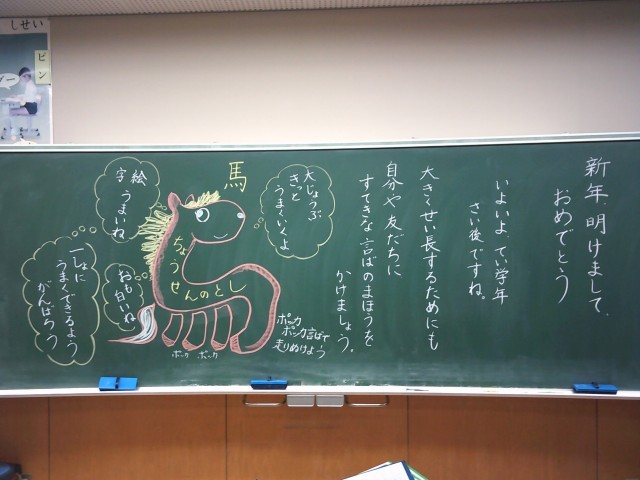 新年、明けまして、
おめでとう
いよいよ、てい学年
さい後ですね。
大きくせい長するためにも
自分や友だちに
すてきな言ばのまほうを
かけましょう。
馬
大じょうぶ
きっと
うまくいくよ
ちょうせんのとし
絵
字
うまいね
おも白いね
一しょに
うまくできるよう
がんばろう
ポッカ
ポッカ言ばで
走りぬけよう
ポッカ ポッカ
しせい
ピン
グー